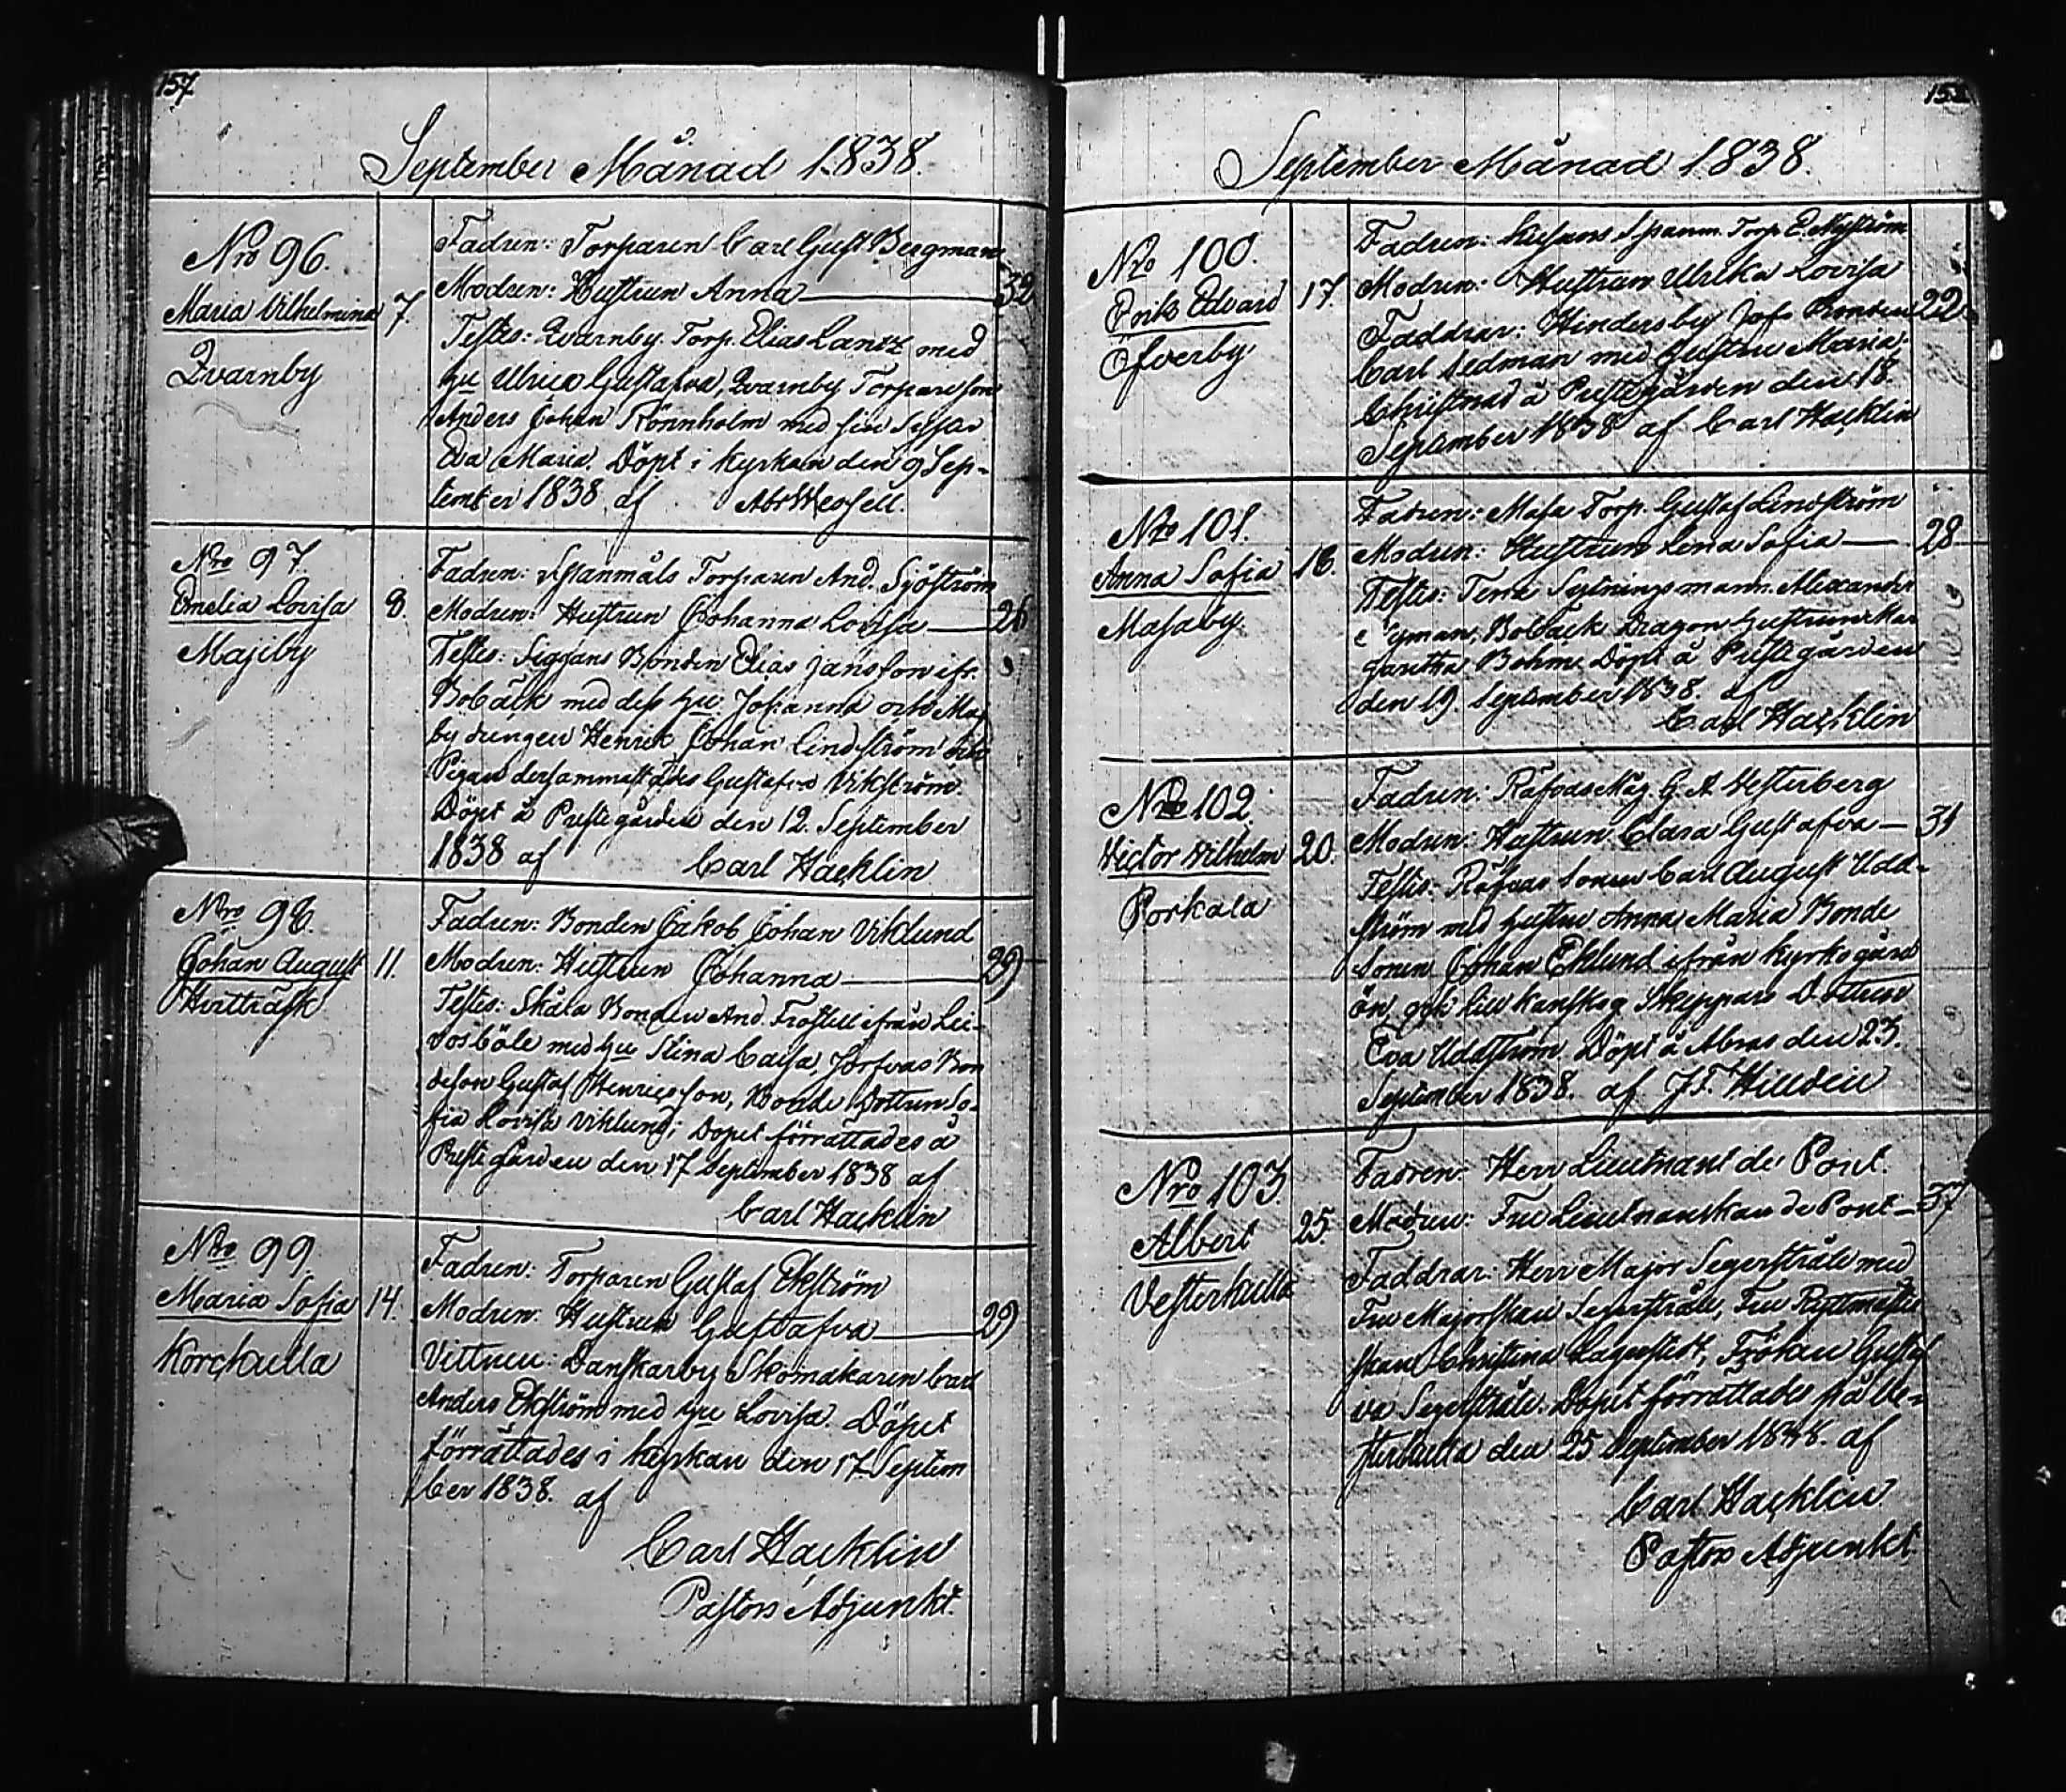 157
September Månad 1838.
Nro 96.
Maria Vilhelmina 7.
Qvarnby
Fadren: Torparen Carl Gust. Bergman
Modren: Hustrun Anna 32
Testes: Qvarnby Torp. Elias Lantz med
hu Ulrica Gustafva, Qvarnby Torpareson
Anders Johan Rönnholm med sin Syster
Eva Maria. Döpt i kyrkan den 9 Sep-
tember 1838 af Abr Wessell.
Nro 97.
Emelia Lovisa 8.
Majiby
Fadren: Spanmåls Torparen And. Sjöström
Modren: Hustrun Johanna Lovisa 26
Testes: Siggans Bonden Elias Jansson ifr.
Bobäck med dess hu Johanna och Maj
by drengen Henrik Johan Lindström och
Pigan dersammastädes Gustafva Vikström.
Döpt å Prestegården den 12. September
1838 af Carl Hacklin
Nro 98.
Johan August 11.
Hvitträsk
Fadren: Bonden Jakob Johan Viklund
Modren: Hustrun Johanna 29
Testes: Skåla Bonden And. Frostell ifrån Lei-
vosböle med hu Stina Caisa, Jorfvas Bon
deson Gustaf Henricsson, Bonde Dottren So-
fia Lovisa Viklund; Dopet förrättades å
Prestegården den 17 September 1838 af
Carl Hacklin
Nro 99.
Maria Sofia 14.
Korckulla
Fadren: Torparen Gustaf Ekström
Modren: Hustrun Gustafva 29
Vittnen: Danskarby Skomakaren Carl
Anders Ekström med hu Lovisa. Döpet
förrättades i kyrkan den 17 Septem
ber 1838. af
Carl Hacklin
Pastors Adjunkt.
September Månad 1838.
Nro 100.
Erik Edvard 17.
Öfverby
Fadren: Spanm. Torp. E. Nyström
Modren: Hustrun Ulrika Lovisa
Faddrar: Hindersby Bonden 22
Carl Sedman med hustru Maria.
Christnad å Prestegården den 18.
September 1838 af Carl Hacklin
Nro 101.
Anna Sofia 18.
Masaby.
Fadren: Masa Torp. Gustaf Lindström
Modren: Hustrun Lena Sofia 28
Testes: Sytningsmann. Alexander
Nyman, Bobäck Dragon hustrun Mar
garetha Böhm. Döpt å Prestegården
den 19. September 1838. af
Carl Hacklin
Nro 102.
Victor Wilhelm 20.
Porkala
Fadren: Räfvas Måg G. A Vesterberg
Modren: Hustrun Clara Gustafva 31
Testes: Räfvas Sonen Carl August Udd-
ström med hustru Anna Maria Bonde
Sonen Johan Eklund ifrån Kyrkogård
ön, Skeppars Dottren
Eva Uddström. Döpt å Abras den 23.
September 1838. af J. F. Hildén
Nro 103.
Albert 25.
Vesterkulla
Fadren: Herr Lieutnant de Pont.
Modren: Fru Lieutnanskan de Pont 37
Faddrar: Herr Major Segerstråle med
Fru Majorskan Segerstråle, Fru Ryttmästa
skan Christina Lagerstedt, Fröken Gustaf
va Segerstråle. Döpet förrättades på Ve-
sterkulla den 25 September 1838. af
Carl Hacklin
Pastors Adjunkt.